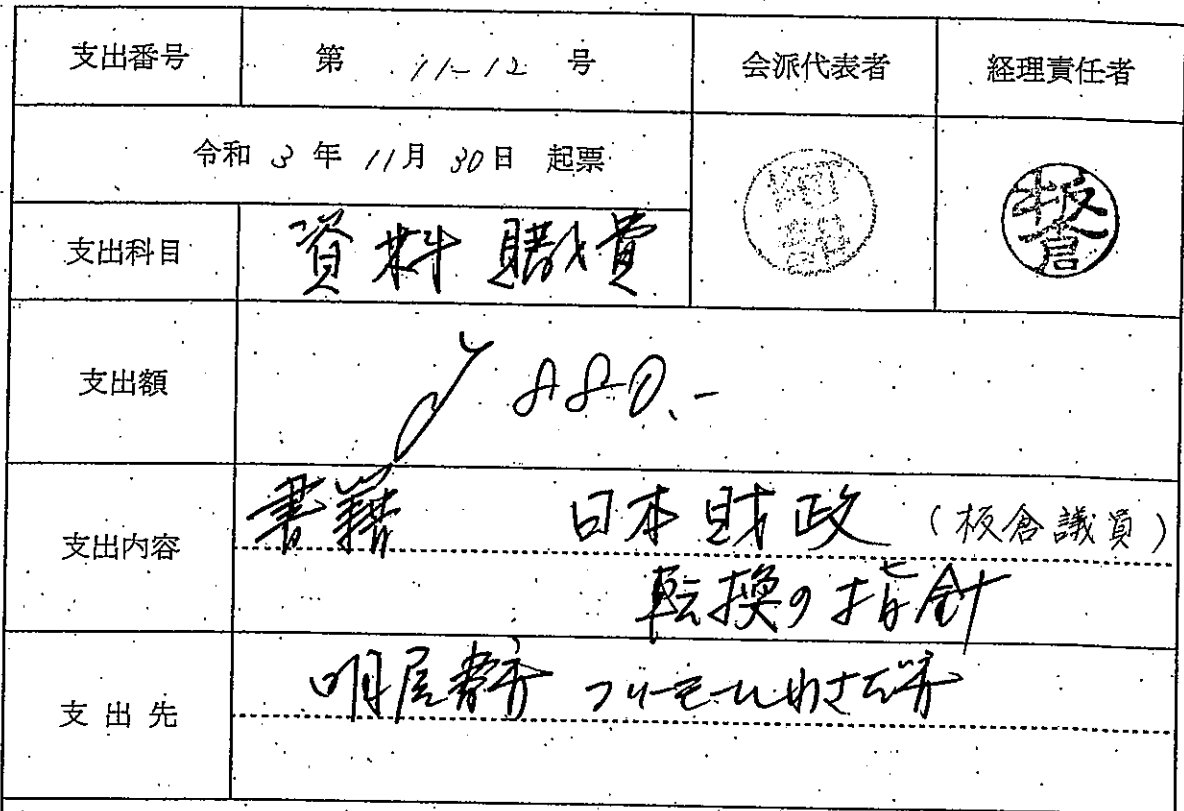 支出番号 第 11-12 号 会派代表者 経理責任者
令和 3 年 11月 30日 起票
阿部
板倉
支出科目 資料購費
支出額 ¥880.-
支出内容 書籍 日本財政 (板倉議員)
転換の指針
支出先 明屋書店